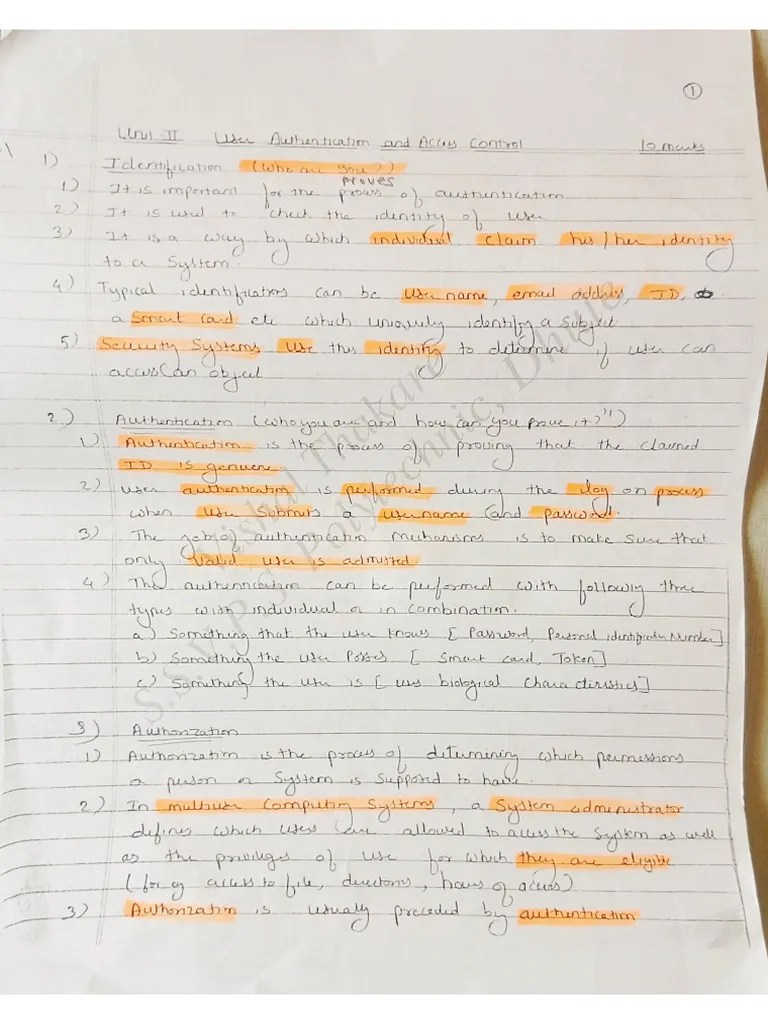 ①
Unit II User Authentication and Access Control 10 marks
1) Identification (Who are you?)
proves
1) It is important for the process of authentication
2) It is used to check the identity of user
3) It is a way by which individual claim his/her identity
to a System.
4) Typical identification can be username, email address, ID,
a smart card etc which uniquely identify a subject
5) Security Systems use this identity to determine if user can
access an object
2) Authentication (who you are and how can you prove it?")
1) Authentication is the process of proving that the claimed
ID is genuine
2) user authentication is performed during the log on process
when user submits a username and password.
3) The job of authentication mechanisms is to make sure that
only valid user is admitted.
4) The authentication can be performed with following three
types with individual or in combination.
a) Something that the user knows [Password, Personal identification Number]
b) Something the user Posses [Smart card, Token]
c) Something the user is [uses biological characteristics]
3) Authorization
1) Authorization is the process of determining which permissions
a person or system is supposed to have.
2) In multiuser Computing Systems, a System administrator
defines which users are allowed to access the System as well
as the privileges of use for which they are eligible
(for eg access to file, directories, hours of access)
3) Authorization is usually preceded by authentication
Vishal Thakare
S.S.V.P.S Polytechnic, Dhule